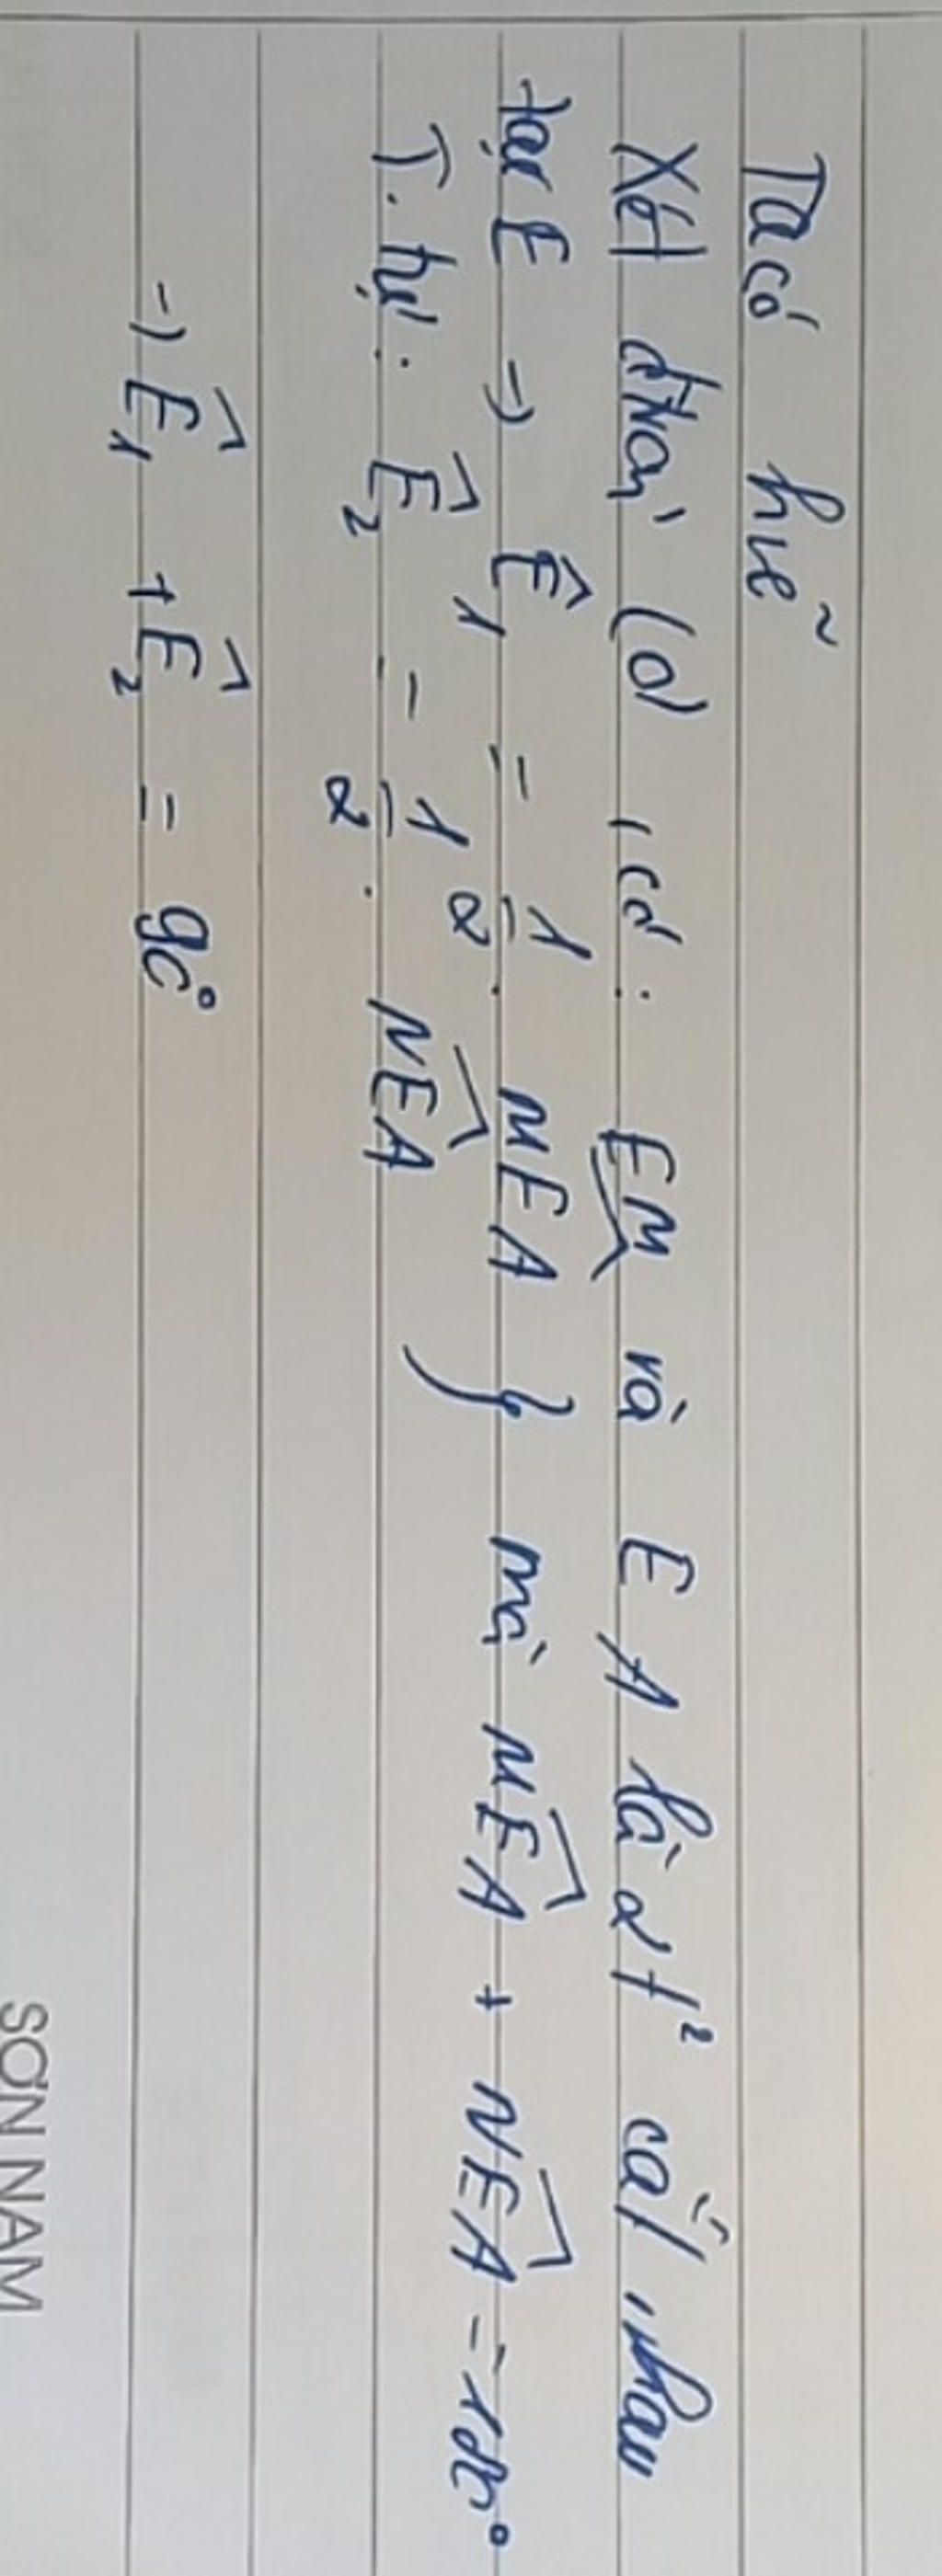 Ta có hvẽ
Xét đtròn (O), có: EM và EA là 2 t² cắt nhau
tại E => Ê₁ = 1/2 . MEA } mà MEA + NEA = 180°
T. tự: Ê₂ = 1/2 . NEA
=> Ê₁ + Ê₂ = 90°
SƠN NAM